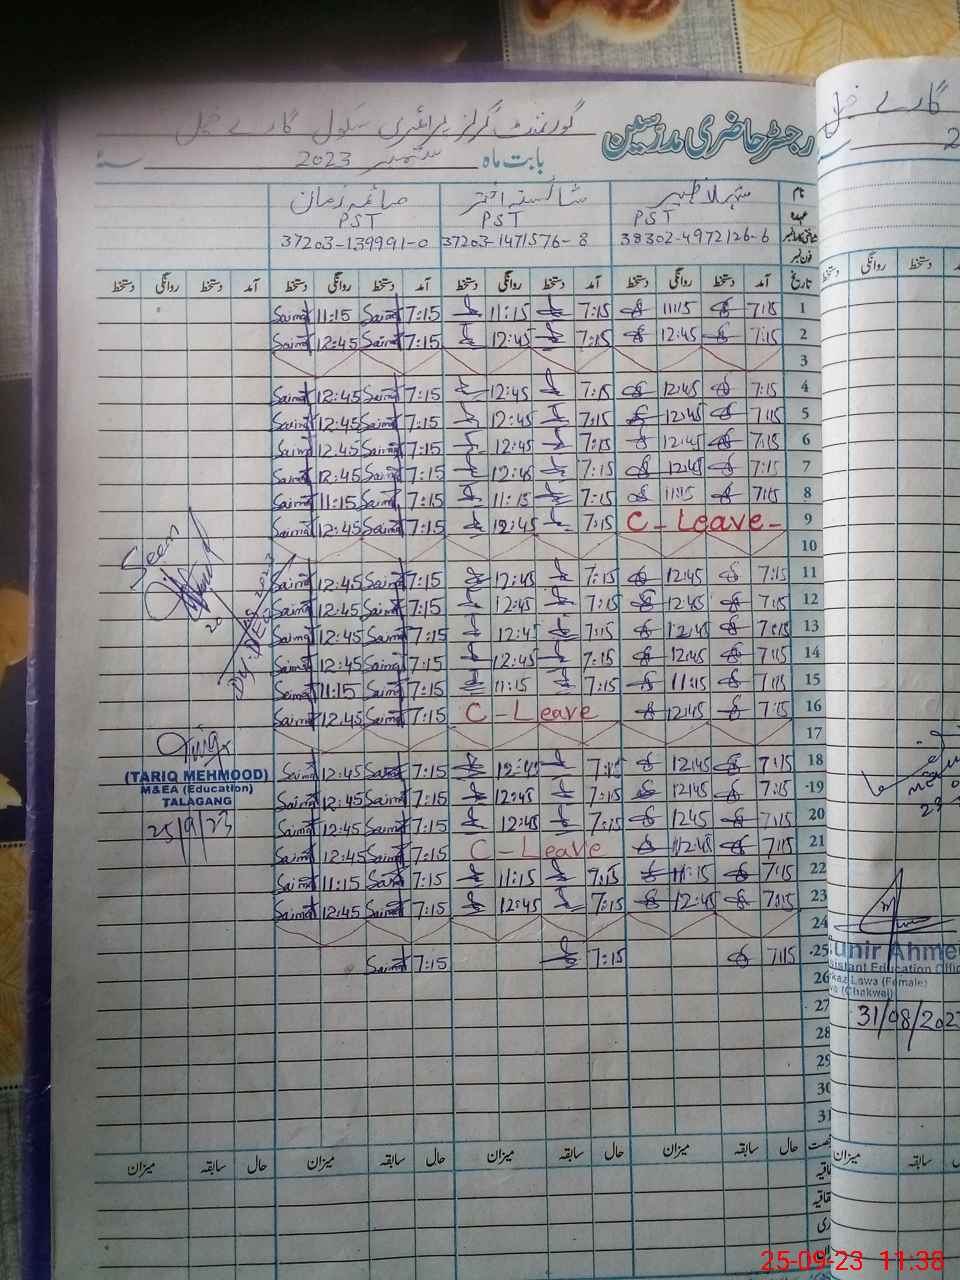 گورنمنٹ گرلز پرائمری سکول گارے خیل
رجسٹر حاضری مدرسین
بابت ماہ ستمبر 2023 سنہ
نام شہلا ظہیر شائستہ اختر صائمہ زمان
عہدہ PST PST PST
شناختی کارڈ نمبر 38302-4972126-6 37203-1471576-8 37203-139991-0
فون نمبر
تاریخ آمد دستخط روانگی دستخط آمد دستخط روانگی دستخط آمد دستخط روانگی دستخط آمد دستخط روانگی دستخط
1 7:15 11:15 7:15 11:15 7:15 Saima 11:15 Saima
2 7:15 12:45 7:15 12:45 7:15 Saima 12:45 Saima
3
4 7:15 12:45 7:15 12:45 7:15 Saima 12:45 Saima
5 7:15 12:45 7:15 12:45 7:15 Saima 12:45 Saima
6 7:15 12:45 7:15 12:45 7:15 Saima 12:45 Saima
7 7:15 12:45 7:15 12:45 7:15 Saima 12:45 Saima
8 7:15 11:15 7:15 11:15 7:15 Saima 11:15 Saima
9 C - Leave - 7:15 12:45 7:15 Saima 12:45 Saima
10
11 7:15 12:45 7:15 12:45 7:15 Saima 12:45 Saima
12 7:15 12:45 7:15 12:45 7:15 Saima 12:45 Saima
13 7:15 12:45 7:15 12:45 7:15 Saima 12:45 Saima
14 7:15 12:45 7:15 12:45 7:15 Saima 12:45 Saima
15 7:15 11:15 7:15 11:15 7:15 Saima 11:15 Saima
16 7:15 12:45 C - Leave 7:15 Saima 12:45 Saima
17
18 7:15 12:45 7:15 12:45 7:15 Saima 12:45 Saima
19 7:15 12:45 7:15 12:45 7:15 Saima 12:45 Saima
20 7:15 12:45 7:15 12:45 7:15 Saima 12:45 Saima
21 7:15 12:45 C - Leave 7:15 Saima 12:45 Saima
22 7:15 11:15 7:15 11:15 7:15 Saima 11:15 Saima
23 7:15 12:45 7:15 12:45 7:15 Saima 12:45 Saima
24
25 7:15 7:15 7:15 Saima
26
27
28
29
30
31
حال سابقہ میزان حال سابقہ میزان حال سابقہ میزان
Seen
20
Dy: DEO
2023
(TARIQ MEHMOOD)
M&EA (Education)
TALAGANG
25/9/23
گارے خیل
2
روانگی دستخط
دستخط
23
unir Ahme
istant Education Offic
kaz Lawa (Female)
(Chakwal)
31/08/202
میزان سابقہ
25-09-23 11:38